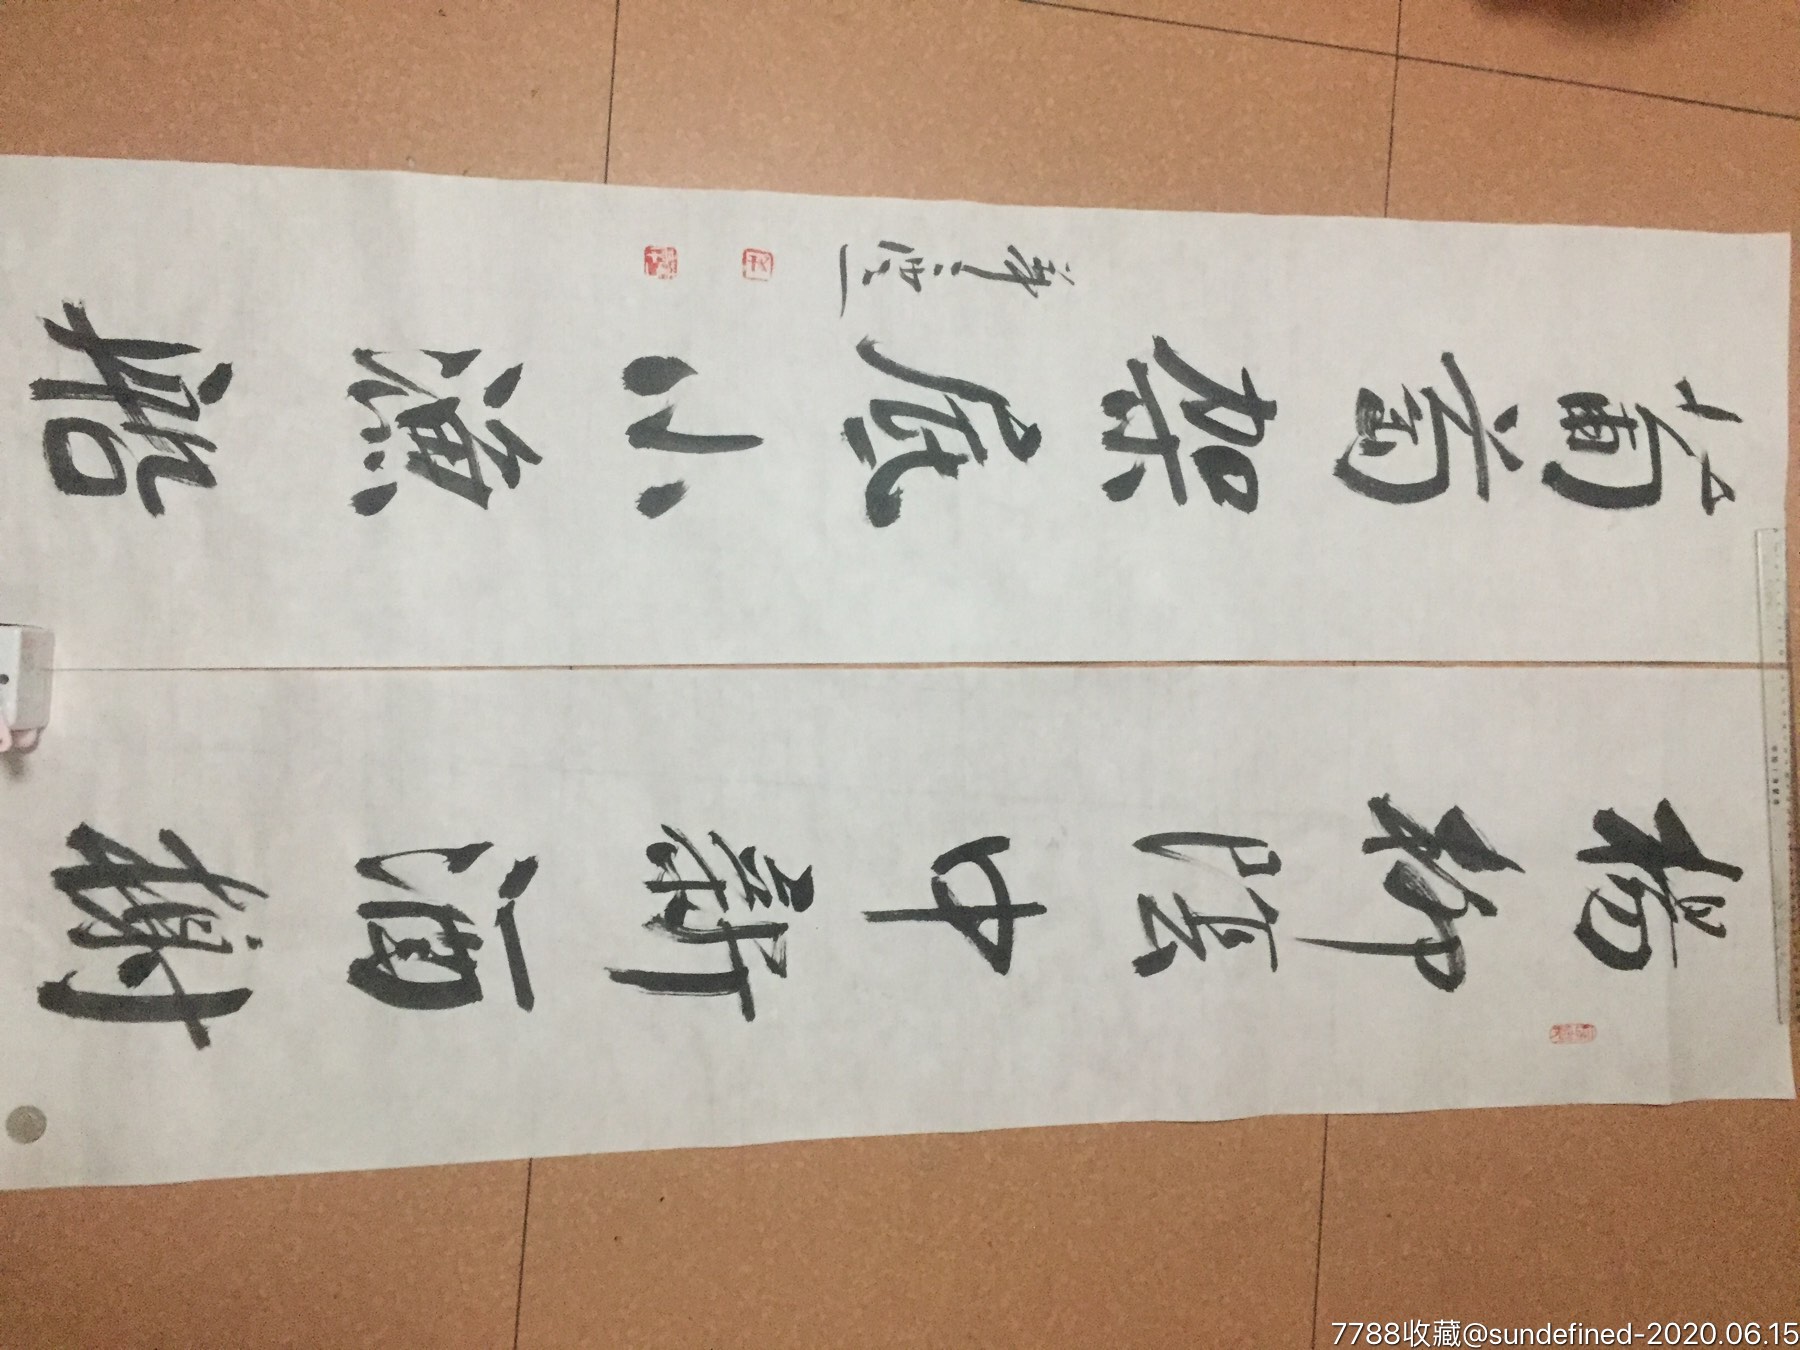 楊柳陰中新酒榭
葡萄架底小漁船
7788收藏@sundefined-2020.06.15